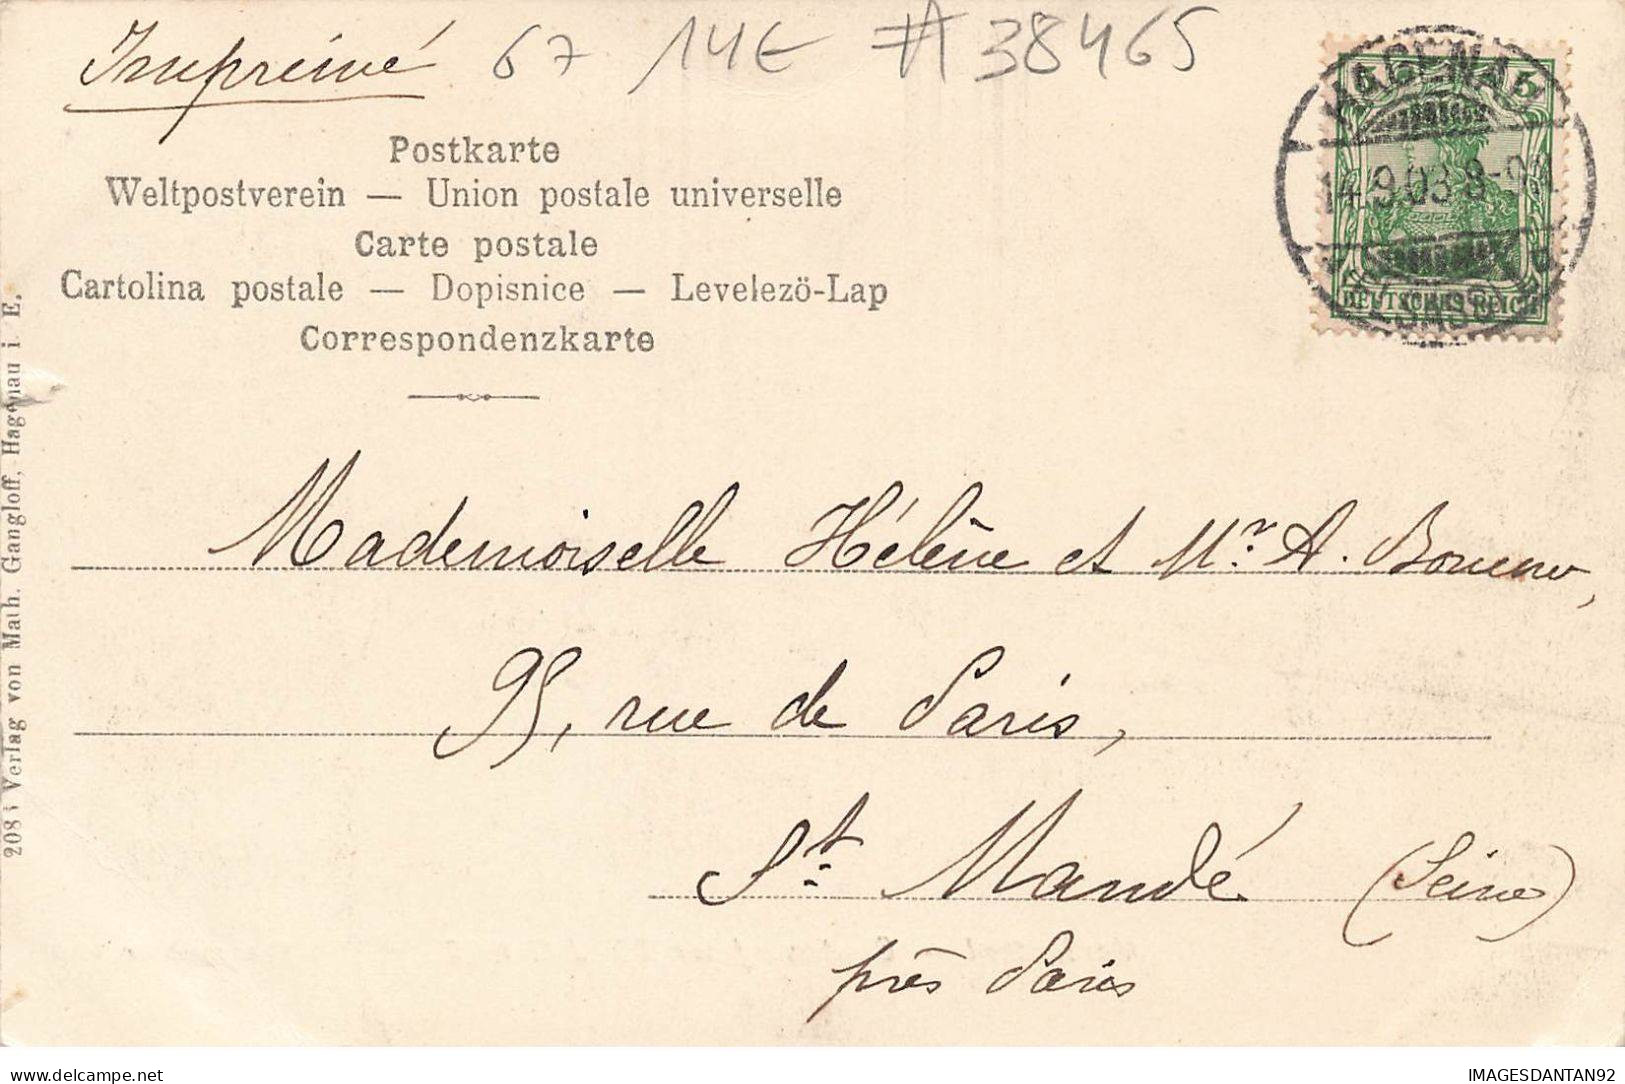 Imprimé 67 14€ #38465
Postkarte
Weltpostverein — Union postale universelle
Carte postale
Cartolina postale — Dopisnice — Levelezö-Lap
Correspondenzkarte
HAGENAU
14.9.03 8-9V.
5
DEUTSCHES REICH
Verlag von Math. Gangloff, Hagenau i. E.
Mademoiselle Hélène et Mr. A.
95, rue de Paris,
St. Mandé (Seine)
près Paris
delcampe.net
IMAGESDANTAN92